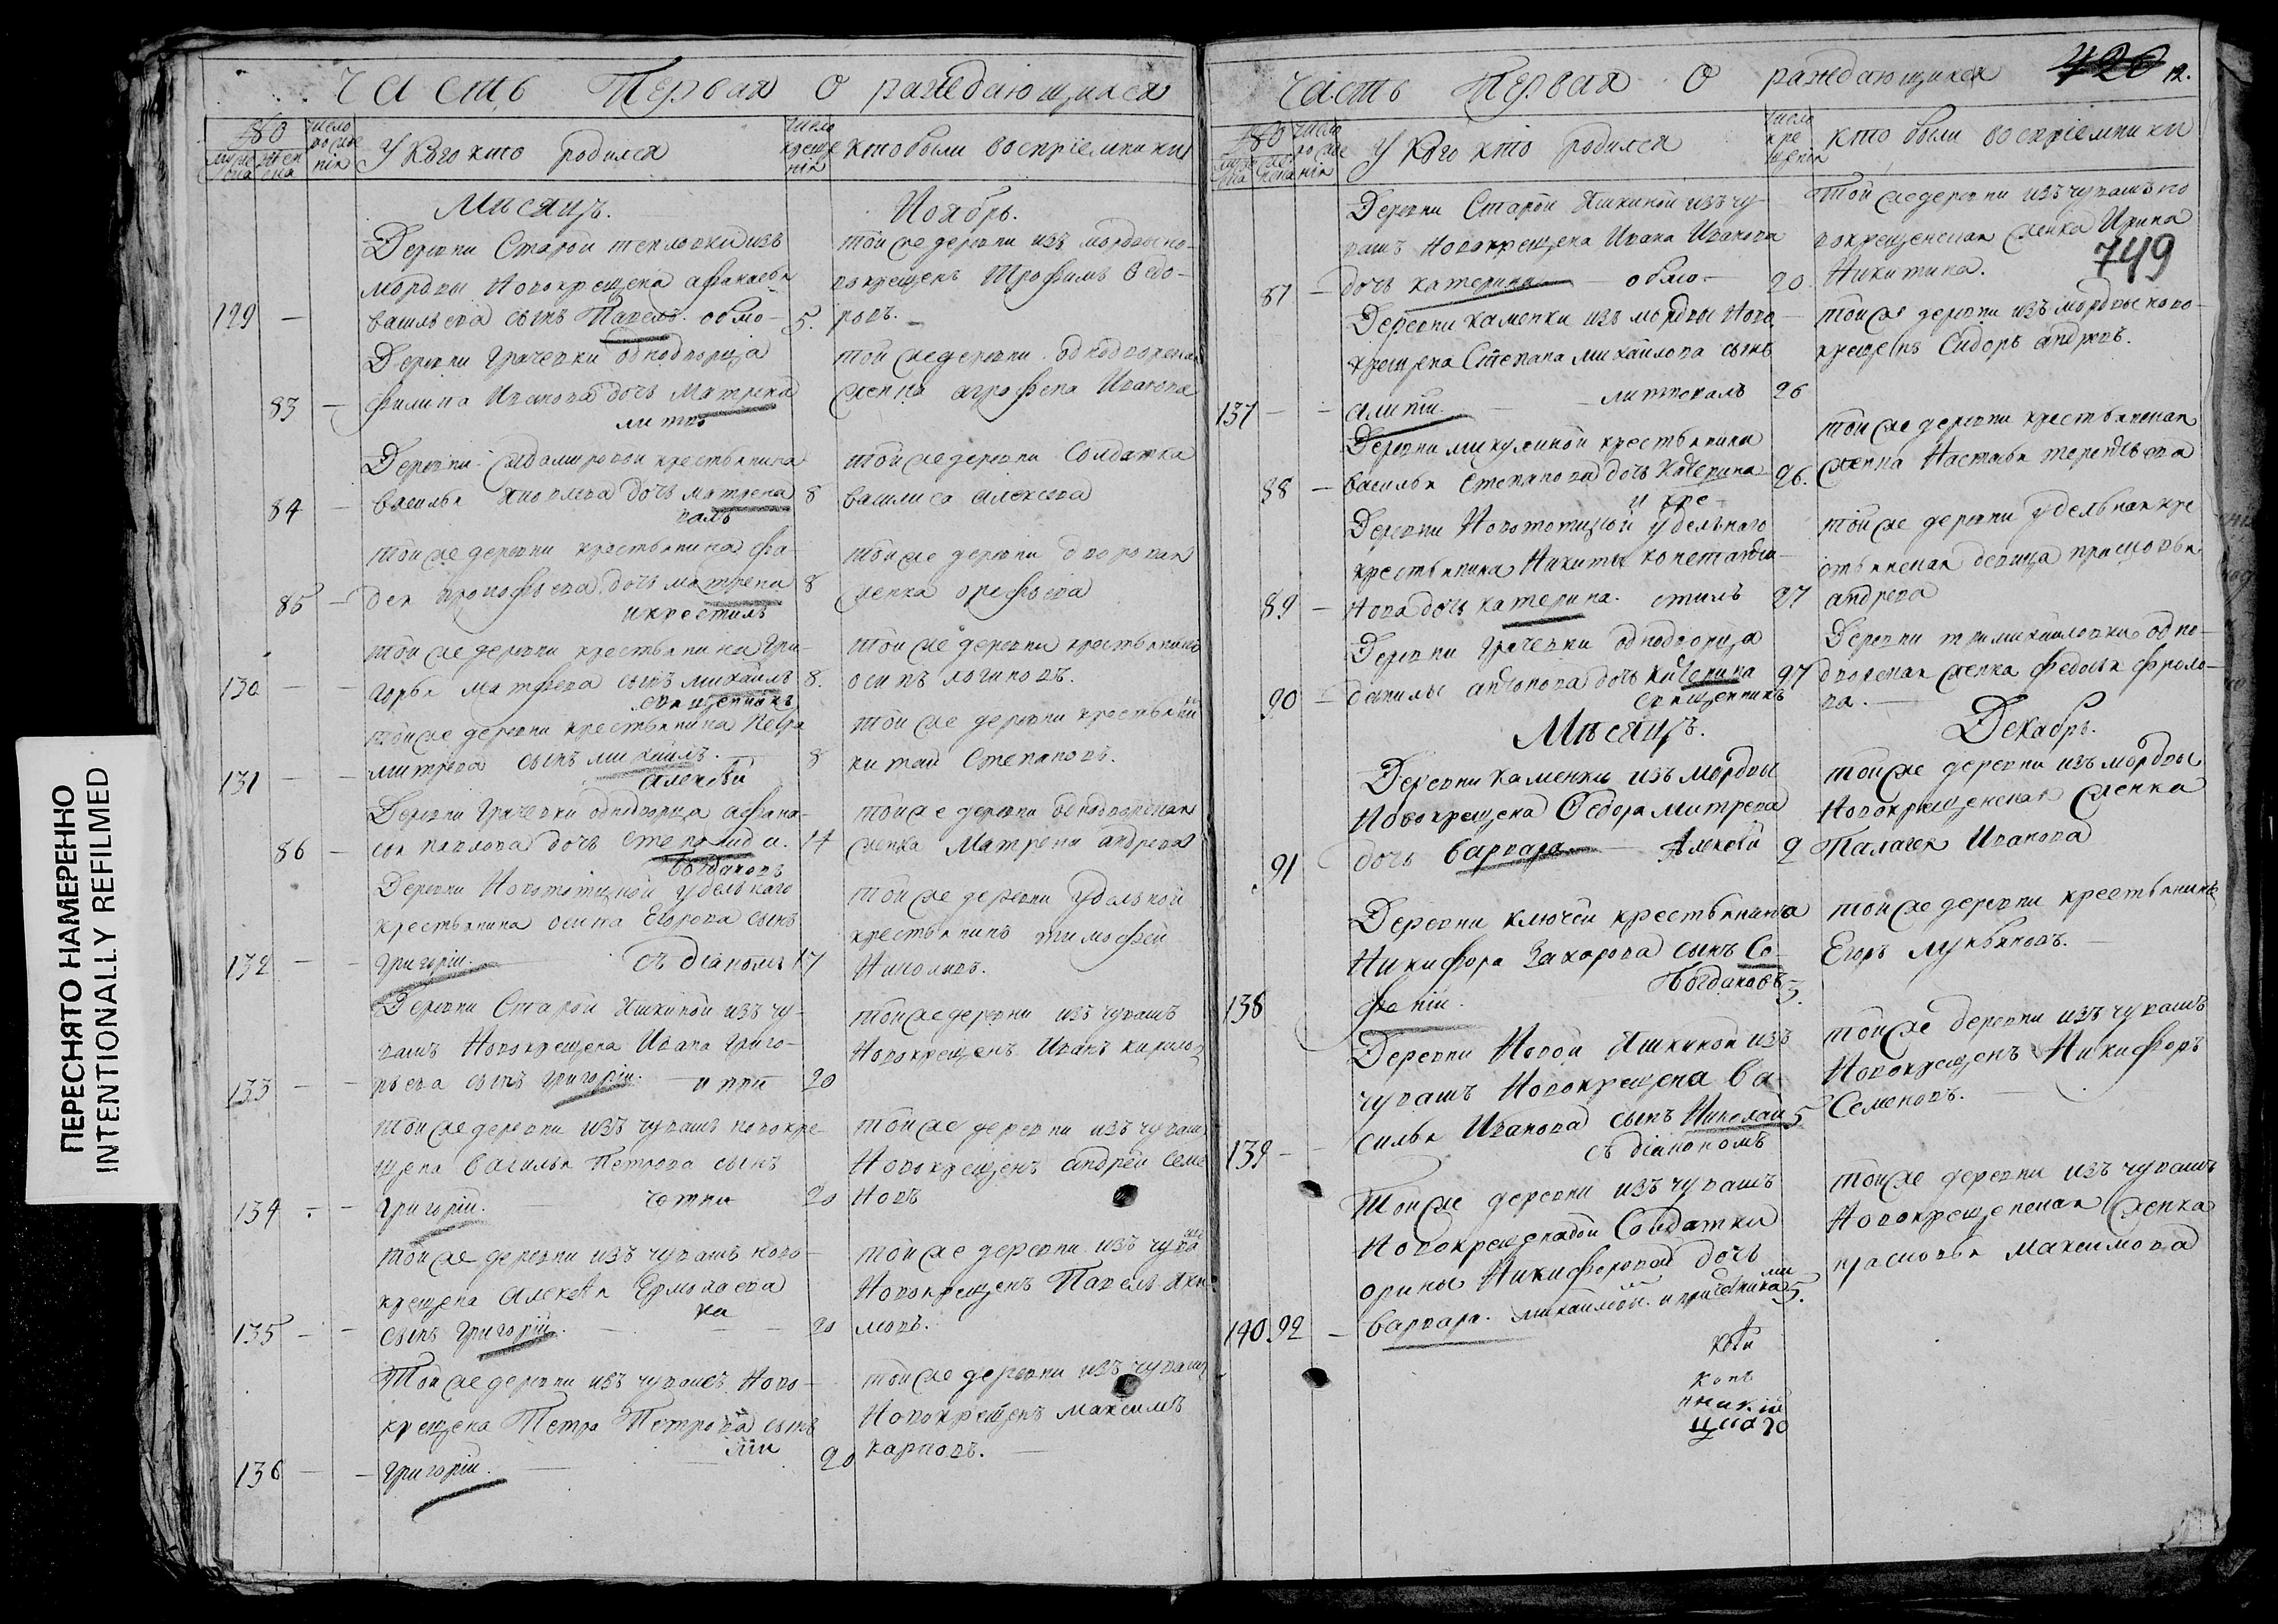 ПЕРЕСНЯТО НАМЕРЕННО
INTENTIONALLY REFILMED
Часть Первая О раждающихся
число рожденія
У Кого кто родился
число крещенія
кто были восприемники
Месяцъ.
Ноябрь.
Деревни Старой тепловки изъ
мордвы Новокрещена афанасья
129 васильева сынъ Павелъ. обмо- 5.
той же деревни изъ мордвы но-
вокрещенъ Трофимъ Федо-
ровъ.
Деревни Грачевки однодворца
83 филипа Иванова дочь Матрена
литв
той же деревни однодворческая
женка агрофена Иванова
Деревни крестьянина
84 василья дочь матрена 8
валъ
той же деревни Солдатка
василиса алексеева
той же деревни крестьянина фа-
85 дея дочь матрена 8
и крестилъ
той же деревни дворовая
женка орефьева
той же деревни крестьянина Гри-
130 горья матфеева сынъ михаилъ 8.
священникъ
той же деревни крестьянинъ
осипъ логиновъ.
той же деревни крестьянина Петра
131 митрева сынъ михаилъ. 8
алексей
той же деревни крестьянинъ
Степановъ.
Деревни Грачевки однодворца афана-
86 сья павлова дочь степанида. 14
Богдановъ
той же деревни однодворческая
женка Матрена андреева
Деревни удельнаго
крестьянина осипа Егорова сынъ
132 григорій. съ діакономъ 17
той же деревни удельной
крестьянинъ тимофей
Николаевъ.
Деревни Старой Яшкиной изъ чу-
вашъ Новокрещена Ивана Григо-
133 рьева сынъ григорій. и при 20
той же деревни изъ чувашъ
Новокрещенъ Иванъ кирилов
той же деревни изъ чувашъ новокре
щена василья Петрова сынъ
134 григорій. четни 20
той же деревни изъ чуваш
Новокрещенъ андрей Семе
новъ
той же деревни изъ чувашъ ново-
крещена алексея Ермолаева
135 сынъ григорій. ка 20
той же деревни изъ чуваш
Новокрещенъ Павелъ Яки
мовъ.
той же деревни изъ чувашъ Ново-
крещена Петра Петрова сынъ
136 григорій. 20
той же деревни изъ чувашъ
Новокрещенъ максимъ
карповъ.
Часть Первая О раждающихся
420 12.
У Кого кто родился
число крещенія
кто были восприемники
749
Деревни Старой Яшкиной изъ чу-
вашъ Новокрещена Ивана Иванова
87 дочь катерина обмо- 20
той же деревни изъ чувашъ но
вокрещенская женка Ирина
Никитина.
Деревни каменки изъ мордвы Ново
крещена Степана михайлова сынъ
137 алипій. литвовалъ 26
той же деревни изъ мордвы ново-
крещенъ Сидоръ андреевъ.
Деревни микулиной крестьянина
88 василья Степанова дочь Катерина 26.
и кре-
той же деревни крестьянская
женка Настасья терентьева
Деревни удельнаго
крестьянина Никиты константи-
89 нова дочь катерина. стилъ 27
той же деревни удельная кре
стьянская девица прасковья
андреева
Деревни Грачевки однодворца
90 данилы антонова дочь катерина 27
священникъ
Деревни одно-
дворская женка федосья фроло-
ва.
Месяцъ.
Декабрь.
Деревни каменки изъ мордвы
Новокрещена Федора митрева
91 дочь варвара алексей 2
той же деревни изъ мордвы
Новокрещенская женка
Палагея Иванова
Деревни ключей крестьянина
Никифора Захарова сынъ Со-
138 фоній. Богдановъ 5.
той же деревни крестьянинъ
Егоръ Лукьяновъ.
Деревни Новой Яшкиной изъ
чувашъ Новокрещена Ва
139 силья Иванова сынъ Николай 5
съ діакономъ
той же деревни изъ чувашъ
Новокрещенъ Никифоръ
Семеновъ.
Той же деревни изъ чувашъ
Новокрещеной Солдатки
орины Никифоровой дочь
140 92 варвара. и причетниками 5.
той же деревни изъ чувашъ
Новокрещенская женка
прасковья максимова